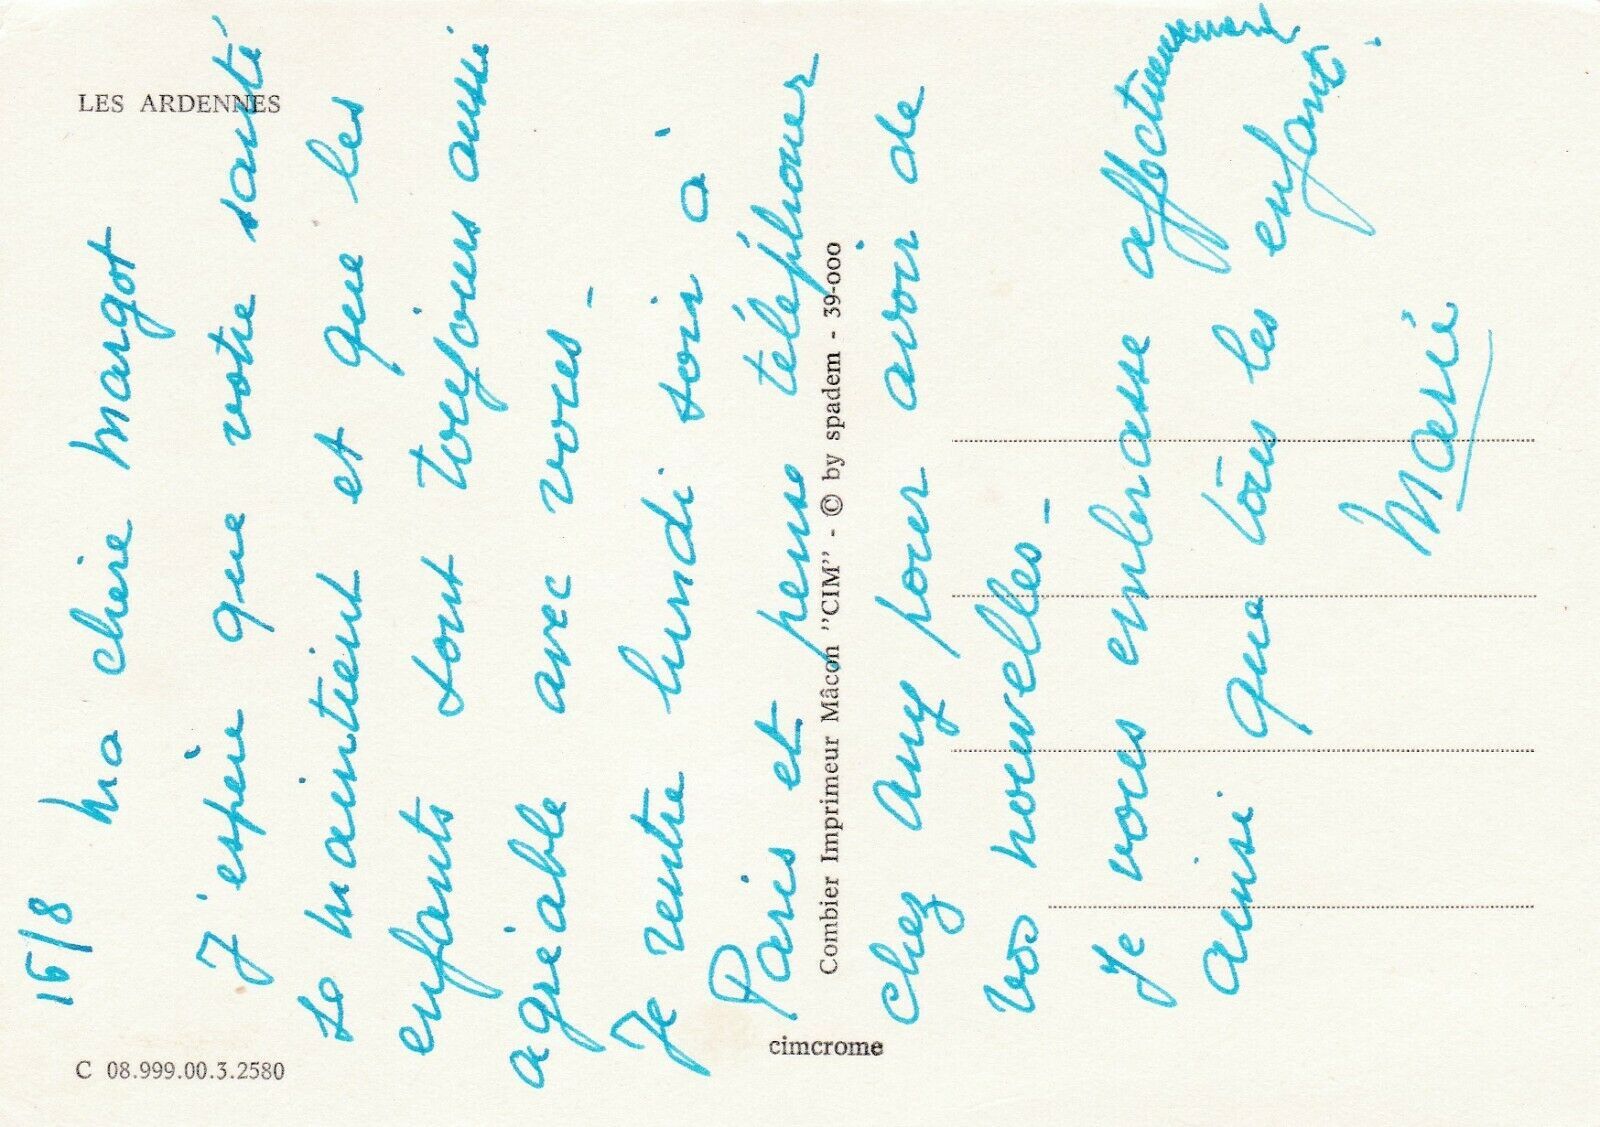 LES ARDENNES
16/8
Ma chère Margot
J'espère que votre santé
se maintient et que les
enfants sont toujours aussi
agréable avec vous -
Je rentre lundi soir à
Paris et pense téléphoner
chez Any pour avoir de
vos nouvelles -
Je vous embrasse affectueusement
ainsi que tous les enfants.
Marie
Combier Imprimeur Mâcon "CIM" - © by spadem - 39-000
cimcrome
C 08.999.00.3.2580